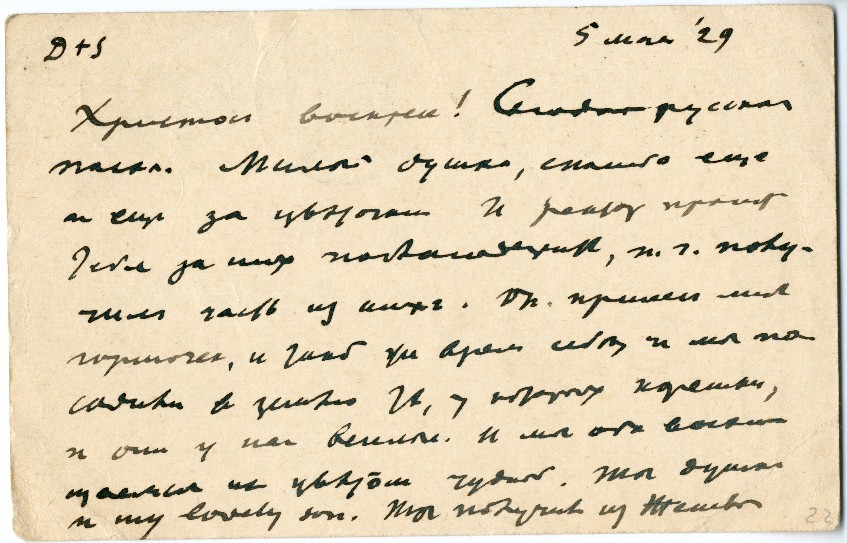 D + S
5 мая '29
Христос воскрес! Сегодня русская
пасха. Милый душка, спасибо еще
и еще за цветочки И просит
тебя за них поблагодарить, п. ч. полу-
чили часть из них. принес мне
горшочек, и земли и мы по
садили в землю те, у которых корешки,
и они у нас веселые. И мы оба восхи
щаемся их цветом чудной. Ты душка
и my lovely son. Ты получив из Женевы
22